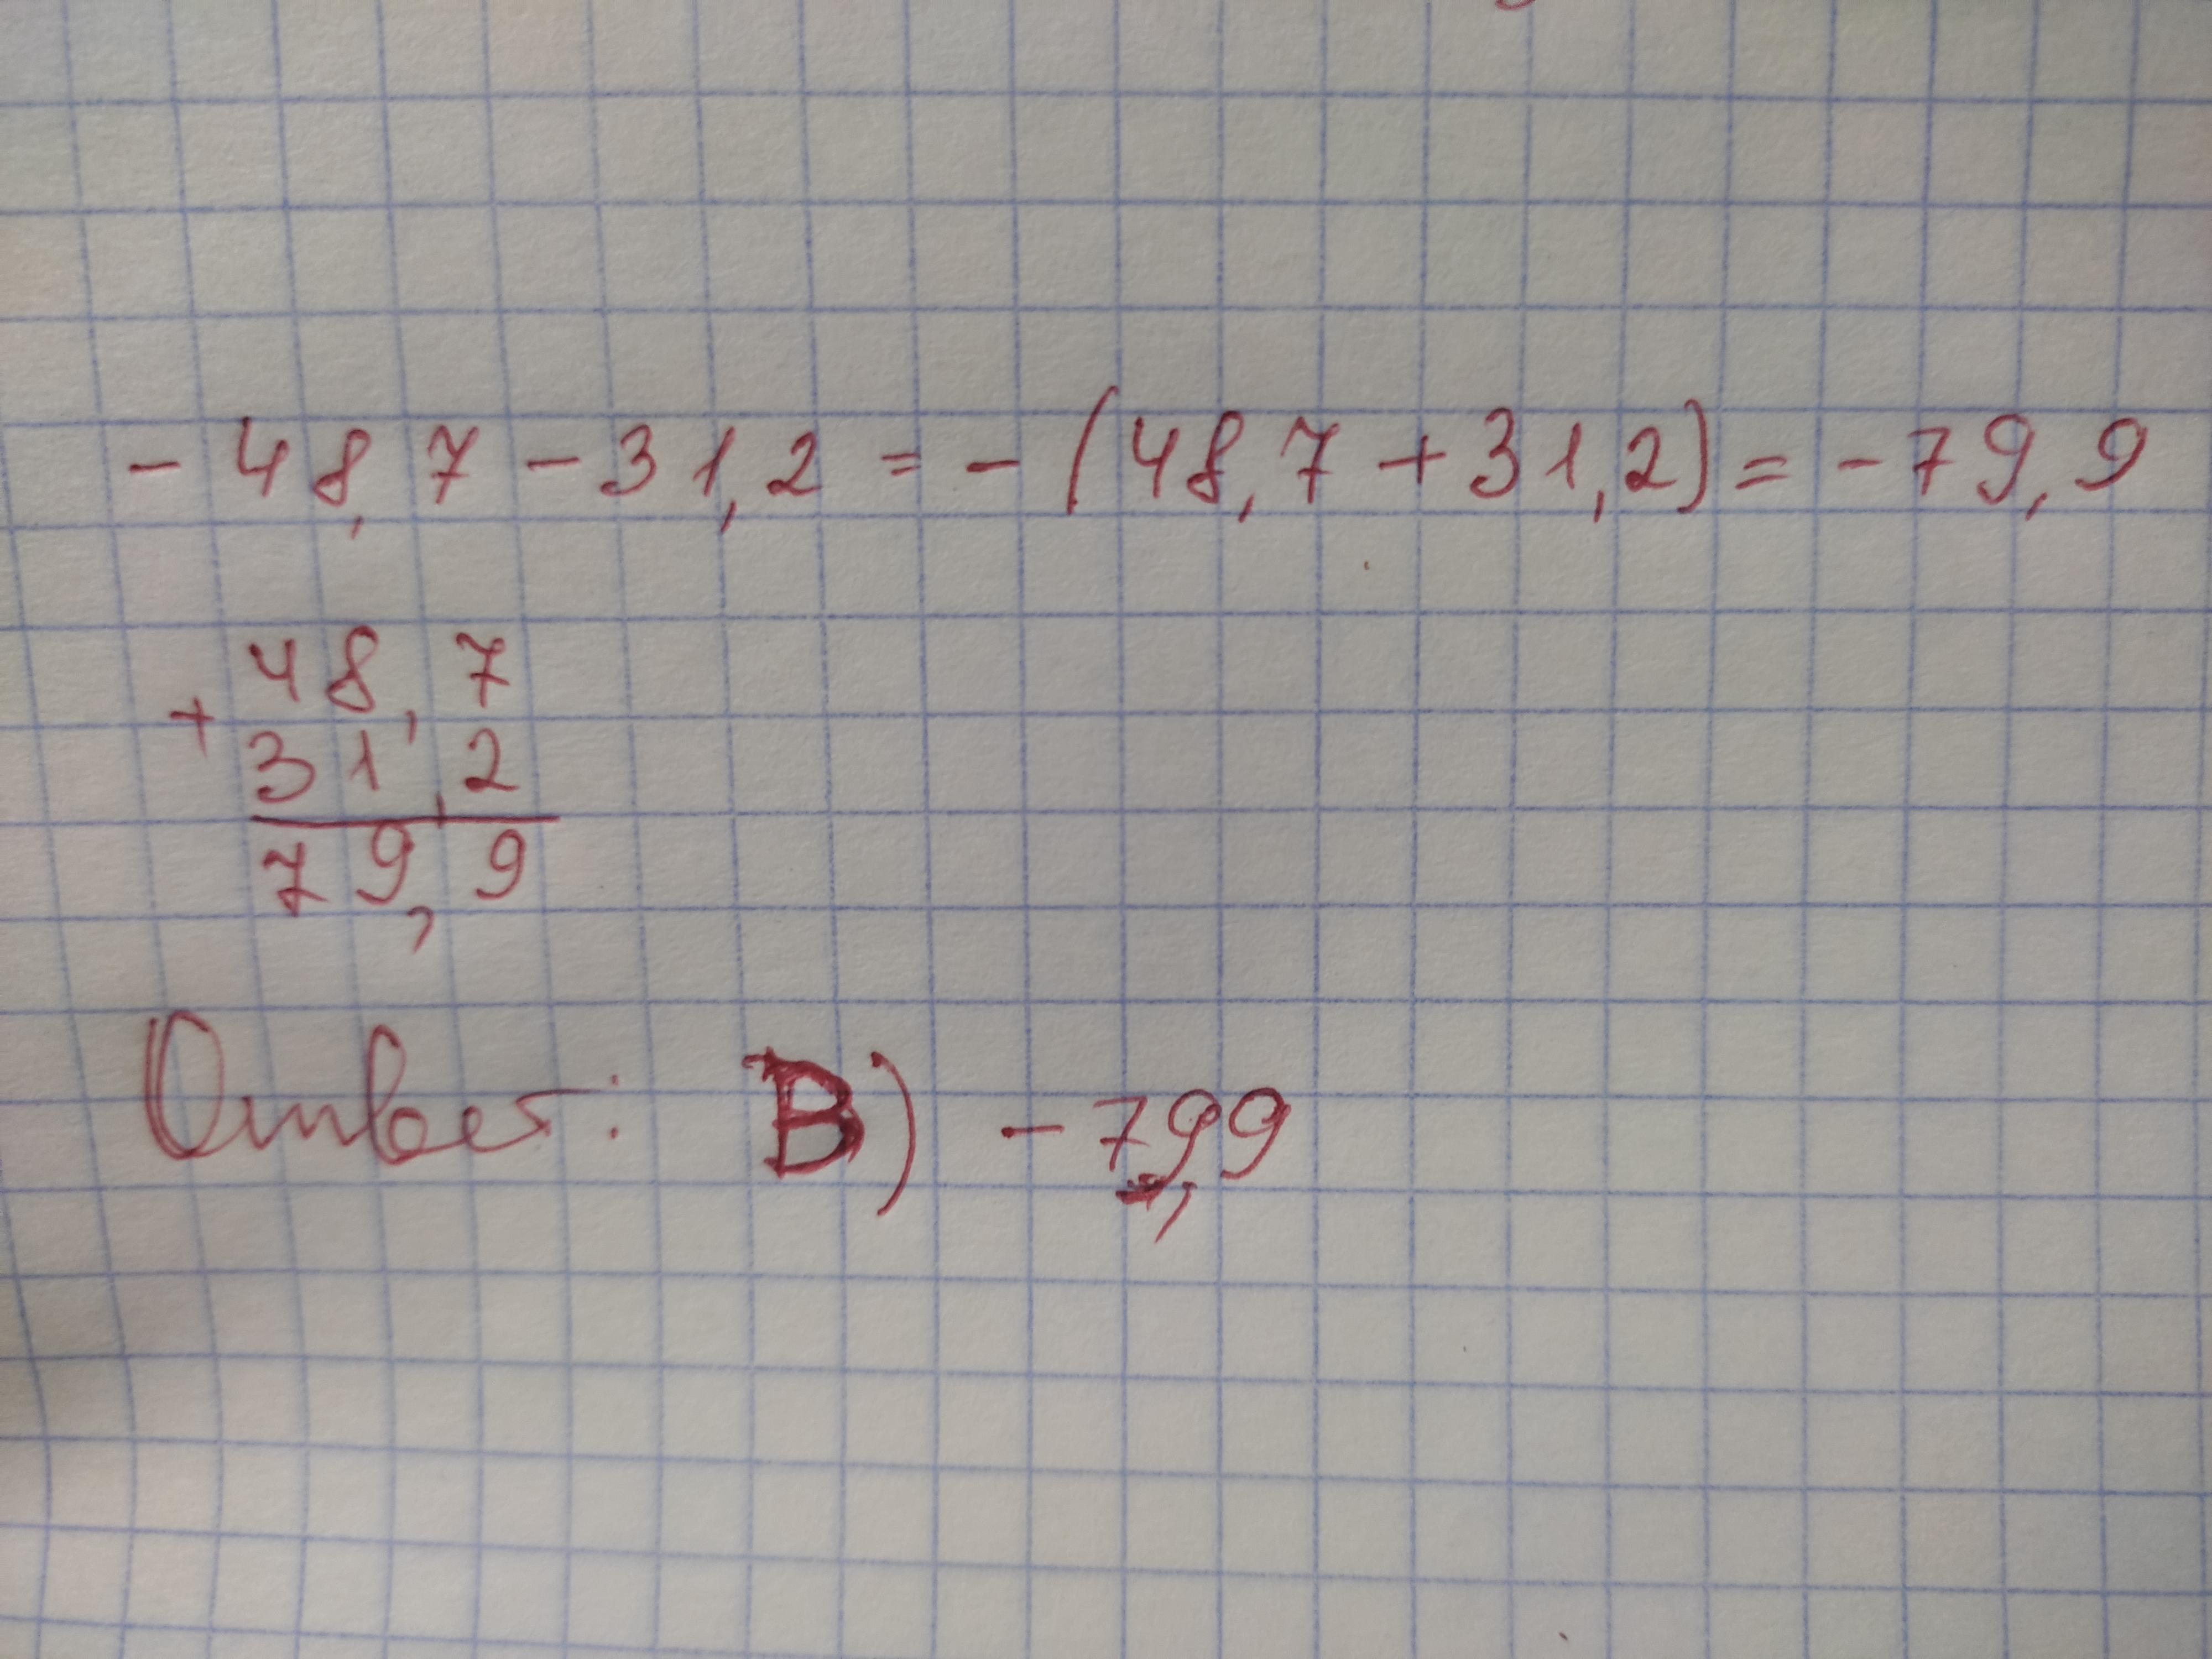 - 48,7 - 31,2 = - (48,7 + 31,2) = - 79,9
48,7
+
31,2
79,9
Ответ: В) - 79,9